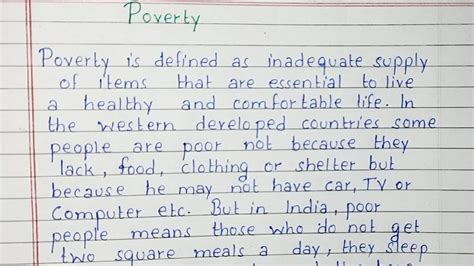 Poverty
Poverty is defined as inadequate supply
of items that are essential to live
a healthy and comfortable life. In
the western developed countries some
people are poor not because they
lack, food, clothing or shelter but
because he may not have car, TV or
Computer etc. But in India, poor
people means those who do not get
two square meals a day, they sleep